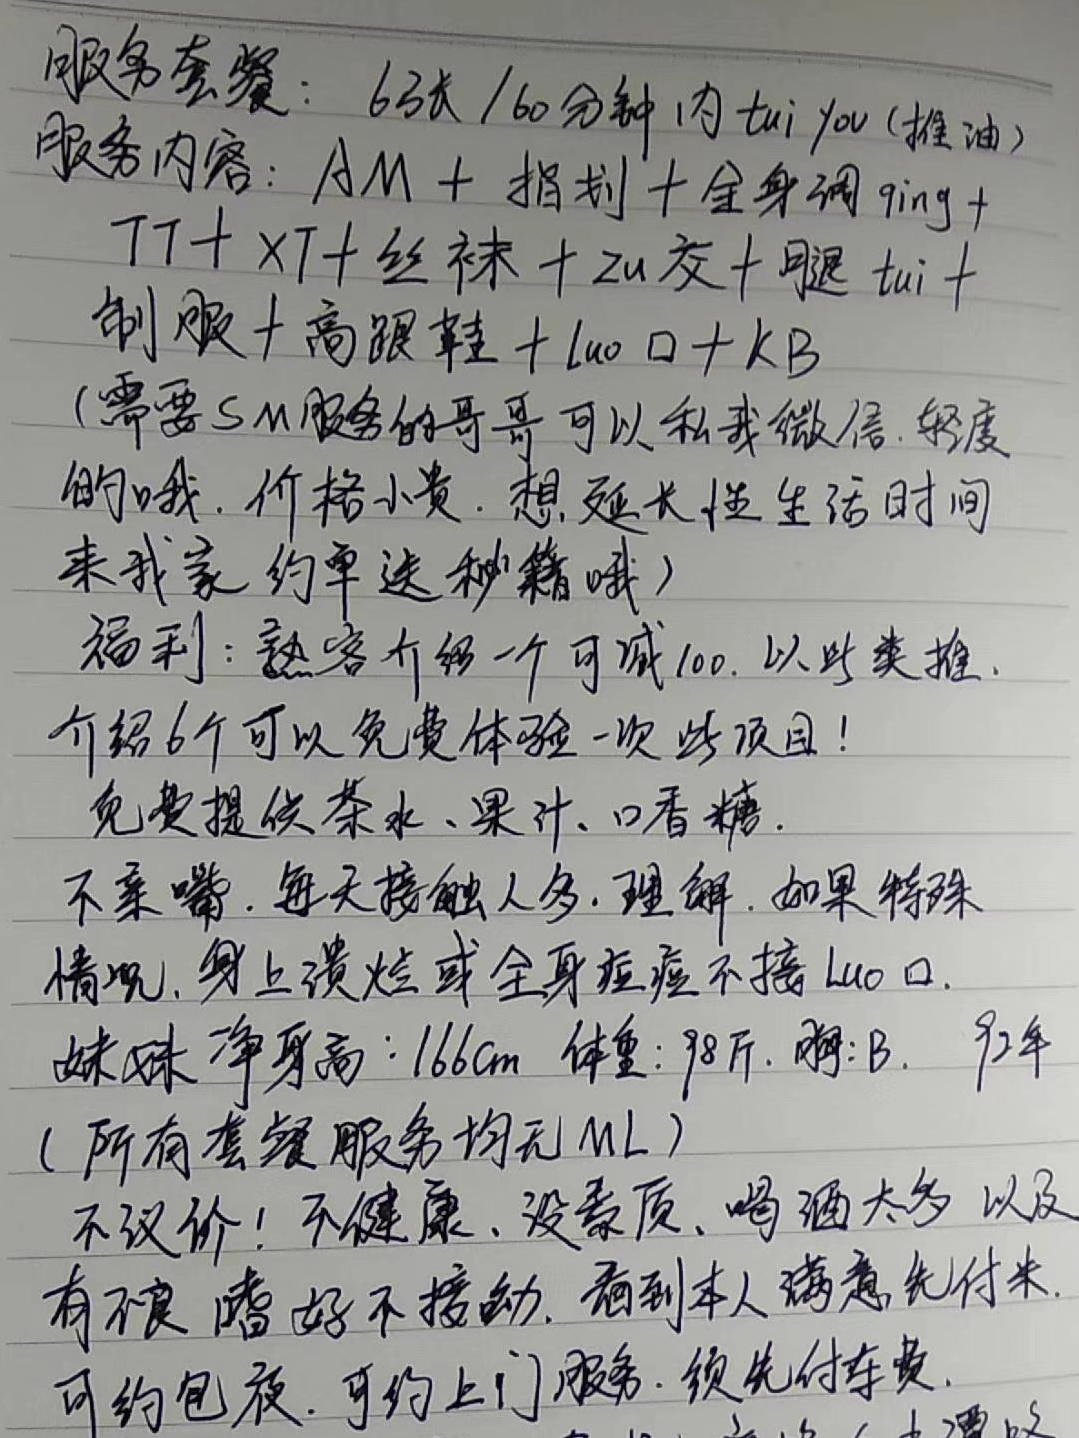 服务套餐：63张/60分钟内tui you（推油）
服务内容：AM+指划+全身调qing+
TT+XT+丝袜+zu交+腿tui+
制服+高跟鞋+Luo口+KB
（需要SM服务的哥哥可以私我微信.轻度
的哦.价格小贵.想延长性生活时间
来我家约单送秘籍哦）
福利：熟客介绍一个可减100.以此类推.
介绍6个可以免费体验一次此项目！
免费提供茶水、果汁、口香糖.
不亲嘴.每天接触人多.理解.如果特殊
情况.身上溃烂或全身痘痘不接Luo口.
妹妹净身高：166cm 体重：98斤.胸：B. 92年
（所有套餐服务均无ML）
不议价！不健康、没素质、喝酒太多以及
有不良嗜好不接呦.看到本人满意先付米.
可约包夜.可约上门服务.须先付车费.